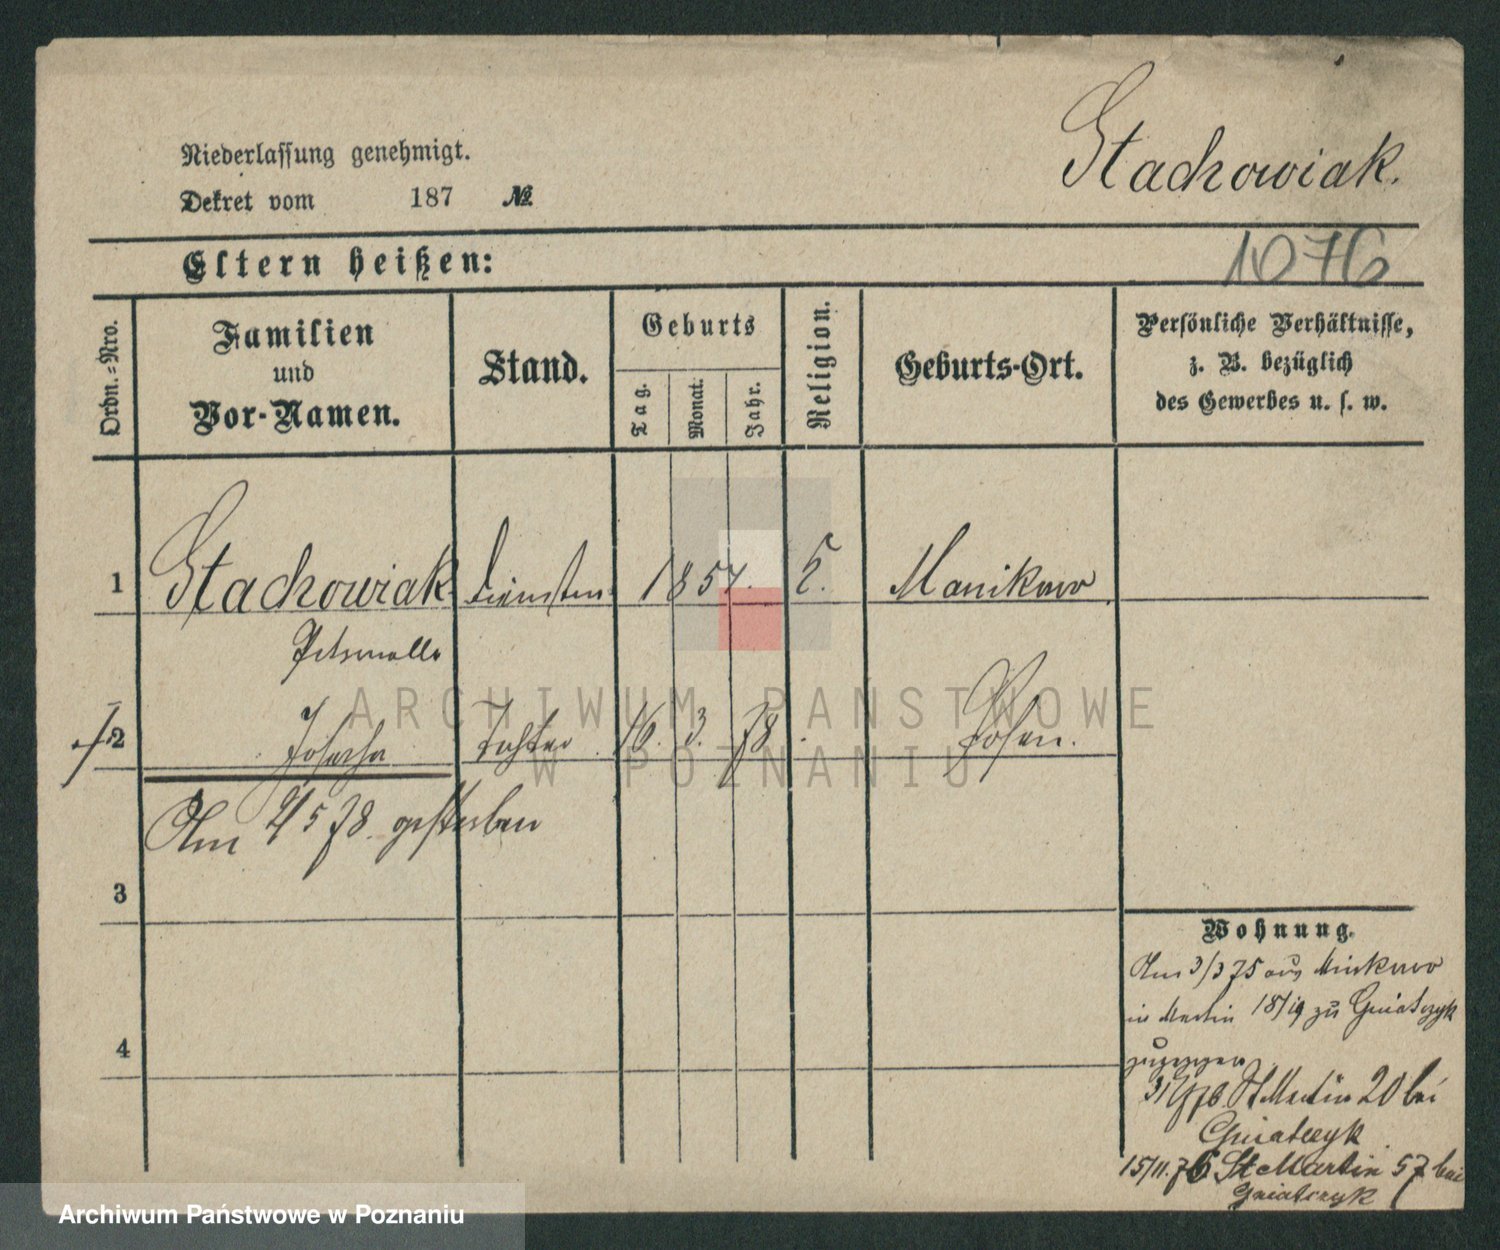 Niederlassung genehmigt.
Dekret vom 187 №
Stachowiak.
1076
Eltern heißen:
Ordn.=Nro.
Familien
und
Vor-Namen.
Stand.
Geburts
Tag.
Monat.
Jahr.
Religion.
Geburts-Ort.
Persönliche Verhältnisse,
z. B. bezüglich
des Gewerbes u. s. w.
1 Stachowiak 1857. Manikowo
Petronella
2 Josepha Tochter 16. 3. 78. Posen.
Am 2/5 78. gestorben
3
4
Wohnung.
Am 3/3 75 aus
in Martin 18/19 zu Gniatczyk
zugezogen
St Martin 20 bei
Gniatczyk
15/11.76 St Martin 57 bei
Gniatczyk
ARCHIWUM PAŃSTWOWE
W POZNANIU
Archiwum Państwowe w Poznaniu